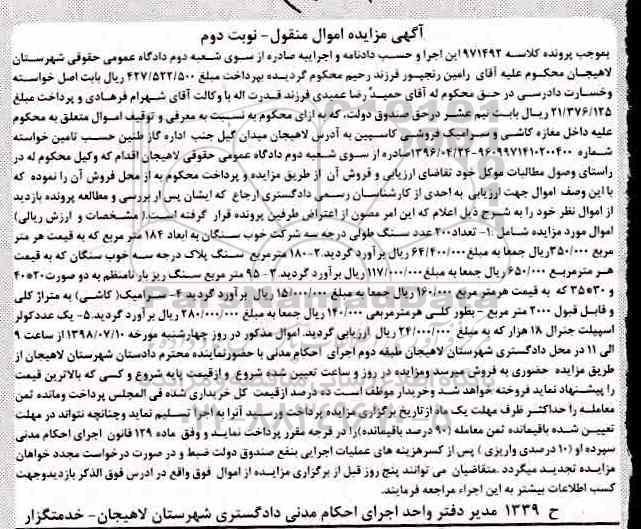 آگهی مزایده اموال منقول- نوبت دوم
بموجب پرونده کلاسه ۹۷۱۴۹۲ این اجرا و حسب دادنامه و اجراییه صادره از سوی شعبه دوم دادگاه عمومی حقوقی شهرستان
لاهیجان محکوم علیه آقای رامین رنجپور فرزند رحیم محکوم گردیده بپرداخت مبلغ ۴۲۷/۵۲۲/۵۰۰ ریال بابت اصل خواسته
وخسارت دادرسی در حق محکوم له آقای حمید رضا عمیدی فرزند قدرت اله با وکالت آقای شهرام فرهادی و پرداخت مبلغ
۲۱/۳۷۶/۱۲۵ ریال بابت نیم عشر درحق صندوق دولت، که به ازای محکوم به نسبت به معرفی و توقیف اموال متعلق به محکوم
علیه داخل مغازه کاشی و سرامیک فروشی کاسپین به آدرس لاهیجان میدان گیل جنب اداره گاز طنین حسب تامین خواسته
شماره ۹۶۰۹۹۷۱۴۱۰۲۰۰۴۰۰-۱۳۹۶/۰۲/۲۴ صادره از سوی شعبه دوم دادگاه عمومی حقوقی لاهیجان اقدام که وکیل محکوم له در
راستای وصول مطالبات موکل خود تقاضای ارزیابی و فروش آن از طریق مزایده و پرداخت محکوم به از محل فروش آن را نموده که
با این وصف اموال جهت ارزیابی به احدی از کارشناسان رسمی دادگستری ارجاع که ایشان پس از بررسی و مطالعه پرونده بازدید
از اموال نظر خود را به شرح ذیل اعلام که این امر مصون از اعتراض طرفین پرونده قرار گرفته است.( مشخصات و ارزش ریالی)
اموال مورد مزایده شامل :۱- تعداد ۲۰۰ عدد سنگ طولی درجه سه شرکت خوب سنگان به ابعاد ۱۸۴ متر مربع که به قیمت هر متر
مربع ۳۵۰/۰۰۰ ریال جمعا به مبلغ ۶۴/۴۰۰/۰۰۰ ریال برآورد گردید.۲-۱۸۰ مترمربع سنگ پلاک درجه سه خوب سنگان که به قیمت
هر مترمربع ۶۵۰/۰۰۰ ریال جمعا به مبلغ ۱۱۷/۰۰۰/۰۰۰ ریال برآورد گردید.۳- ۹۵ متر مربع سنگ ریز بار نامنظم به دو صورت ۲۰*۴۰
و ۳۰*۳۵ که به قیمت هرمتر مربع ۱۶۰/۰۰۰ ریال جمعا به مبلغ ۱۵/۰۰۰/۰۰۰ ریال برآورد گردید.۴- سرامیک( کاشی) به متراژ کلی
و قابل قبول ۲۰۰۰ متر مربع - بطور کلی هرمترمربعی ۱۴۰/۰۰۰ ریال جمعا به مبلغ ۲۸۰/۰۰۰/۰۰۰ ریال برآورد گردید.۵- یک عددکولر
اسپیلت جنرال ۱۸ هزار که به مبلغ ۲۴/۰۰۰/۰۰۰ ریال ارزیابی گردید. اموال مذکور در روز چهارشنبه مورخه ۱۳۹۸/۰۷/۱۰ از ساعت ۹
الی ۱۱ در محل دادگستری شهرستان لاهیجان طبقه دوم اجرای احکام مدنی با حضورنماینده محترم دادستان شهرستان لاهیجان از
طریق مزایده حضوری به فروش میرسد ومزایده در روز و ساعت تعیین شده شروع و ازقیمت پایه شروع و کسی که بالاترین قیمت
را پیشنهاد نماید فروخته خواهد شد وخریدار موظف است ده درصد ازقیمت کل خریداری شده فی المجلس پرداخت ومانده ثمن
معامله را حداکثر ظرف مهلت یک ماه ازتاریخ برگزاری مزایده پرداخت ورسید آنرا به اجرا تسلیم نماید وچنانچه نتواند در مهلت
تعیین شده باقیمانده ثمن معامله (۹۰ درصد باقیمانده)را در فرجه مقرر پرداخت نماید و وفق ماده ۱۲۹ قانون اجرای احکام مدنی
سپرده او (۱۰ درصدی واریزی ) پس از کسرهزینه های عملیات اجرایی بنفع صندوق دولت ضبط و در صورت درخواست مجدد خواهان
مزایده تجدید میگردد .متقاضیان می توانند پنج روز قبل از برگزاری مزایده از اموال فوق واقع در ادرس فوق الذکر بازدیدوجهت
کسب اطلاعات بیشتر به این اجراء مراجعه فرمایند.
ح ۱۳۳۹ مدیر دفتر واحد اجرای احکام مدنی دادگستری شهرستان لاهیجان- خدمتگزار